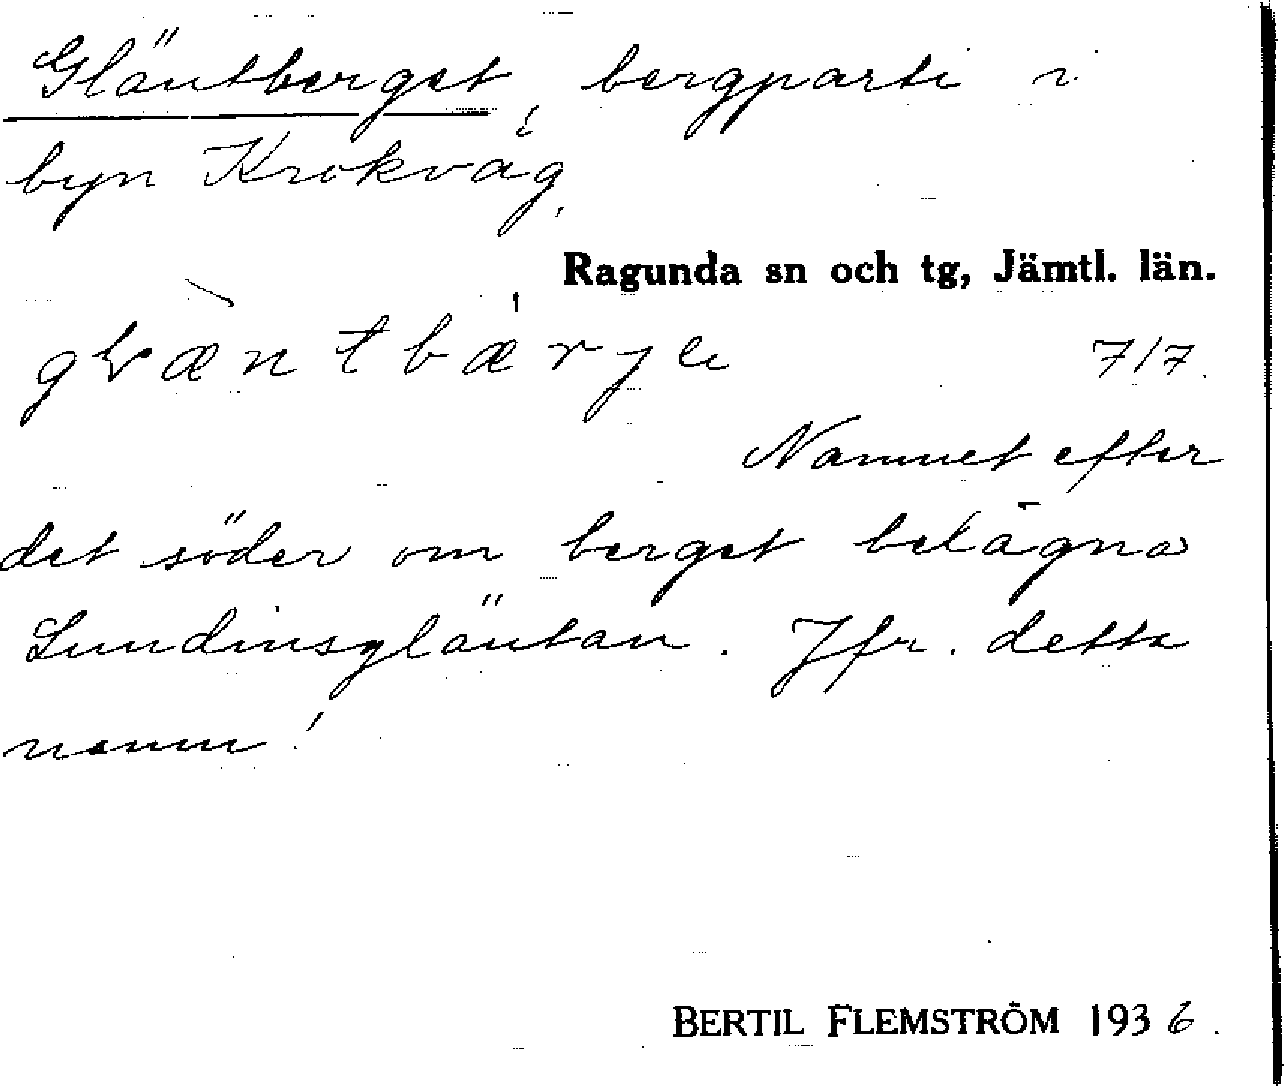 Gläntberget, bergparti i
byn Krokvåg,
Ragunda sn och tg, Jämtl. län.
7/7.
Namnet efter
det söder om berget belägna
Lundinsgläntan. Jfr. detta
namn!
BERTIL FLEMSTRÖM 1936.